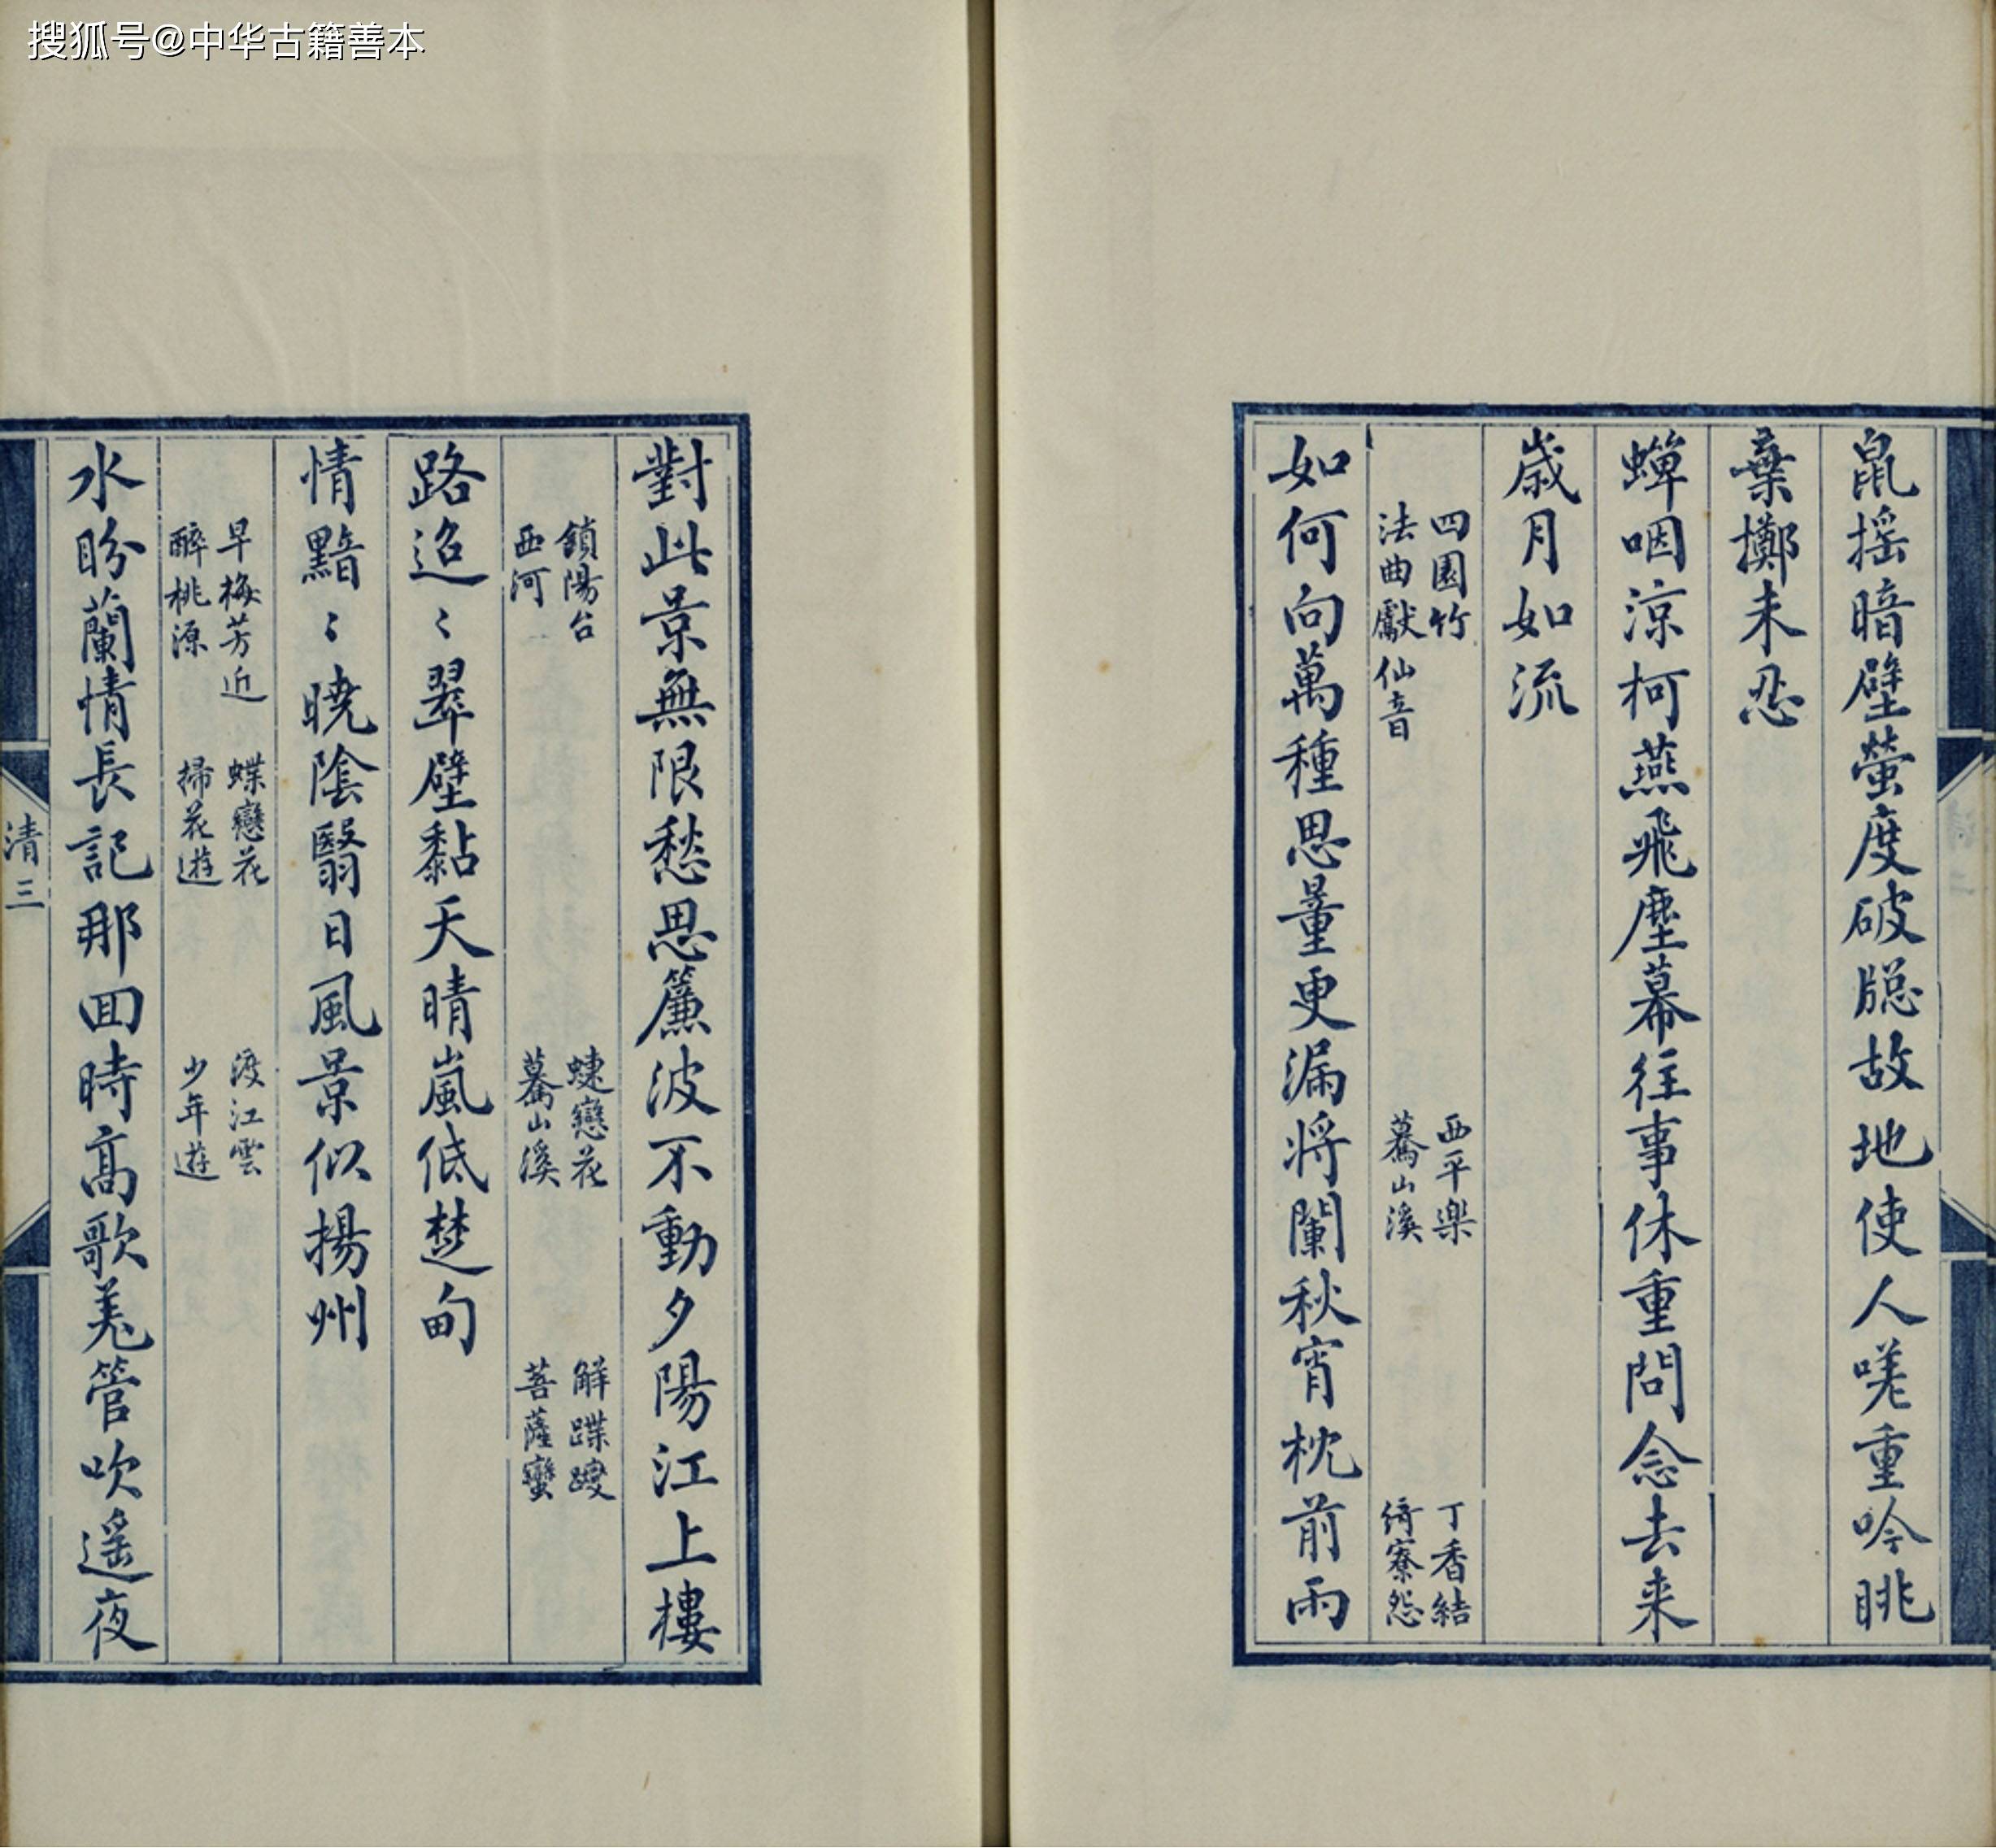 搜狐号@中华古籍善本
鼠摇暗壁螢度破牎故地使人嗟重吟眺
棄擲未忍
蟬咽涼柯燕飛塵幕往事休重問念去来
歲月如流
四園竹 西平樂 丁香結
法曲獻仙音 驀山溪 綺寮怨
如何向萬種思量更漏將闌秋宵枕前雨
對此景無限愁思簾波不動夕陽江上樓
鎖陽台 蜨戀花 解蹀躞
西河 驀山溪 菩薩蠻
路迢〻翠壁黏天晴嵐低楚甸
情黯〻曉陰翳日風景似揚州
早梅芳近 蝶戀花 渡江雲
醉桃源 掃花遊 少年遊
水盼蘭情長記那回時高歌羌管吹遥夜
清三